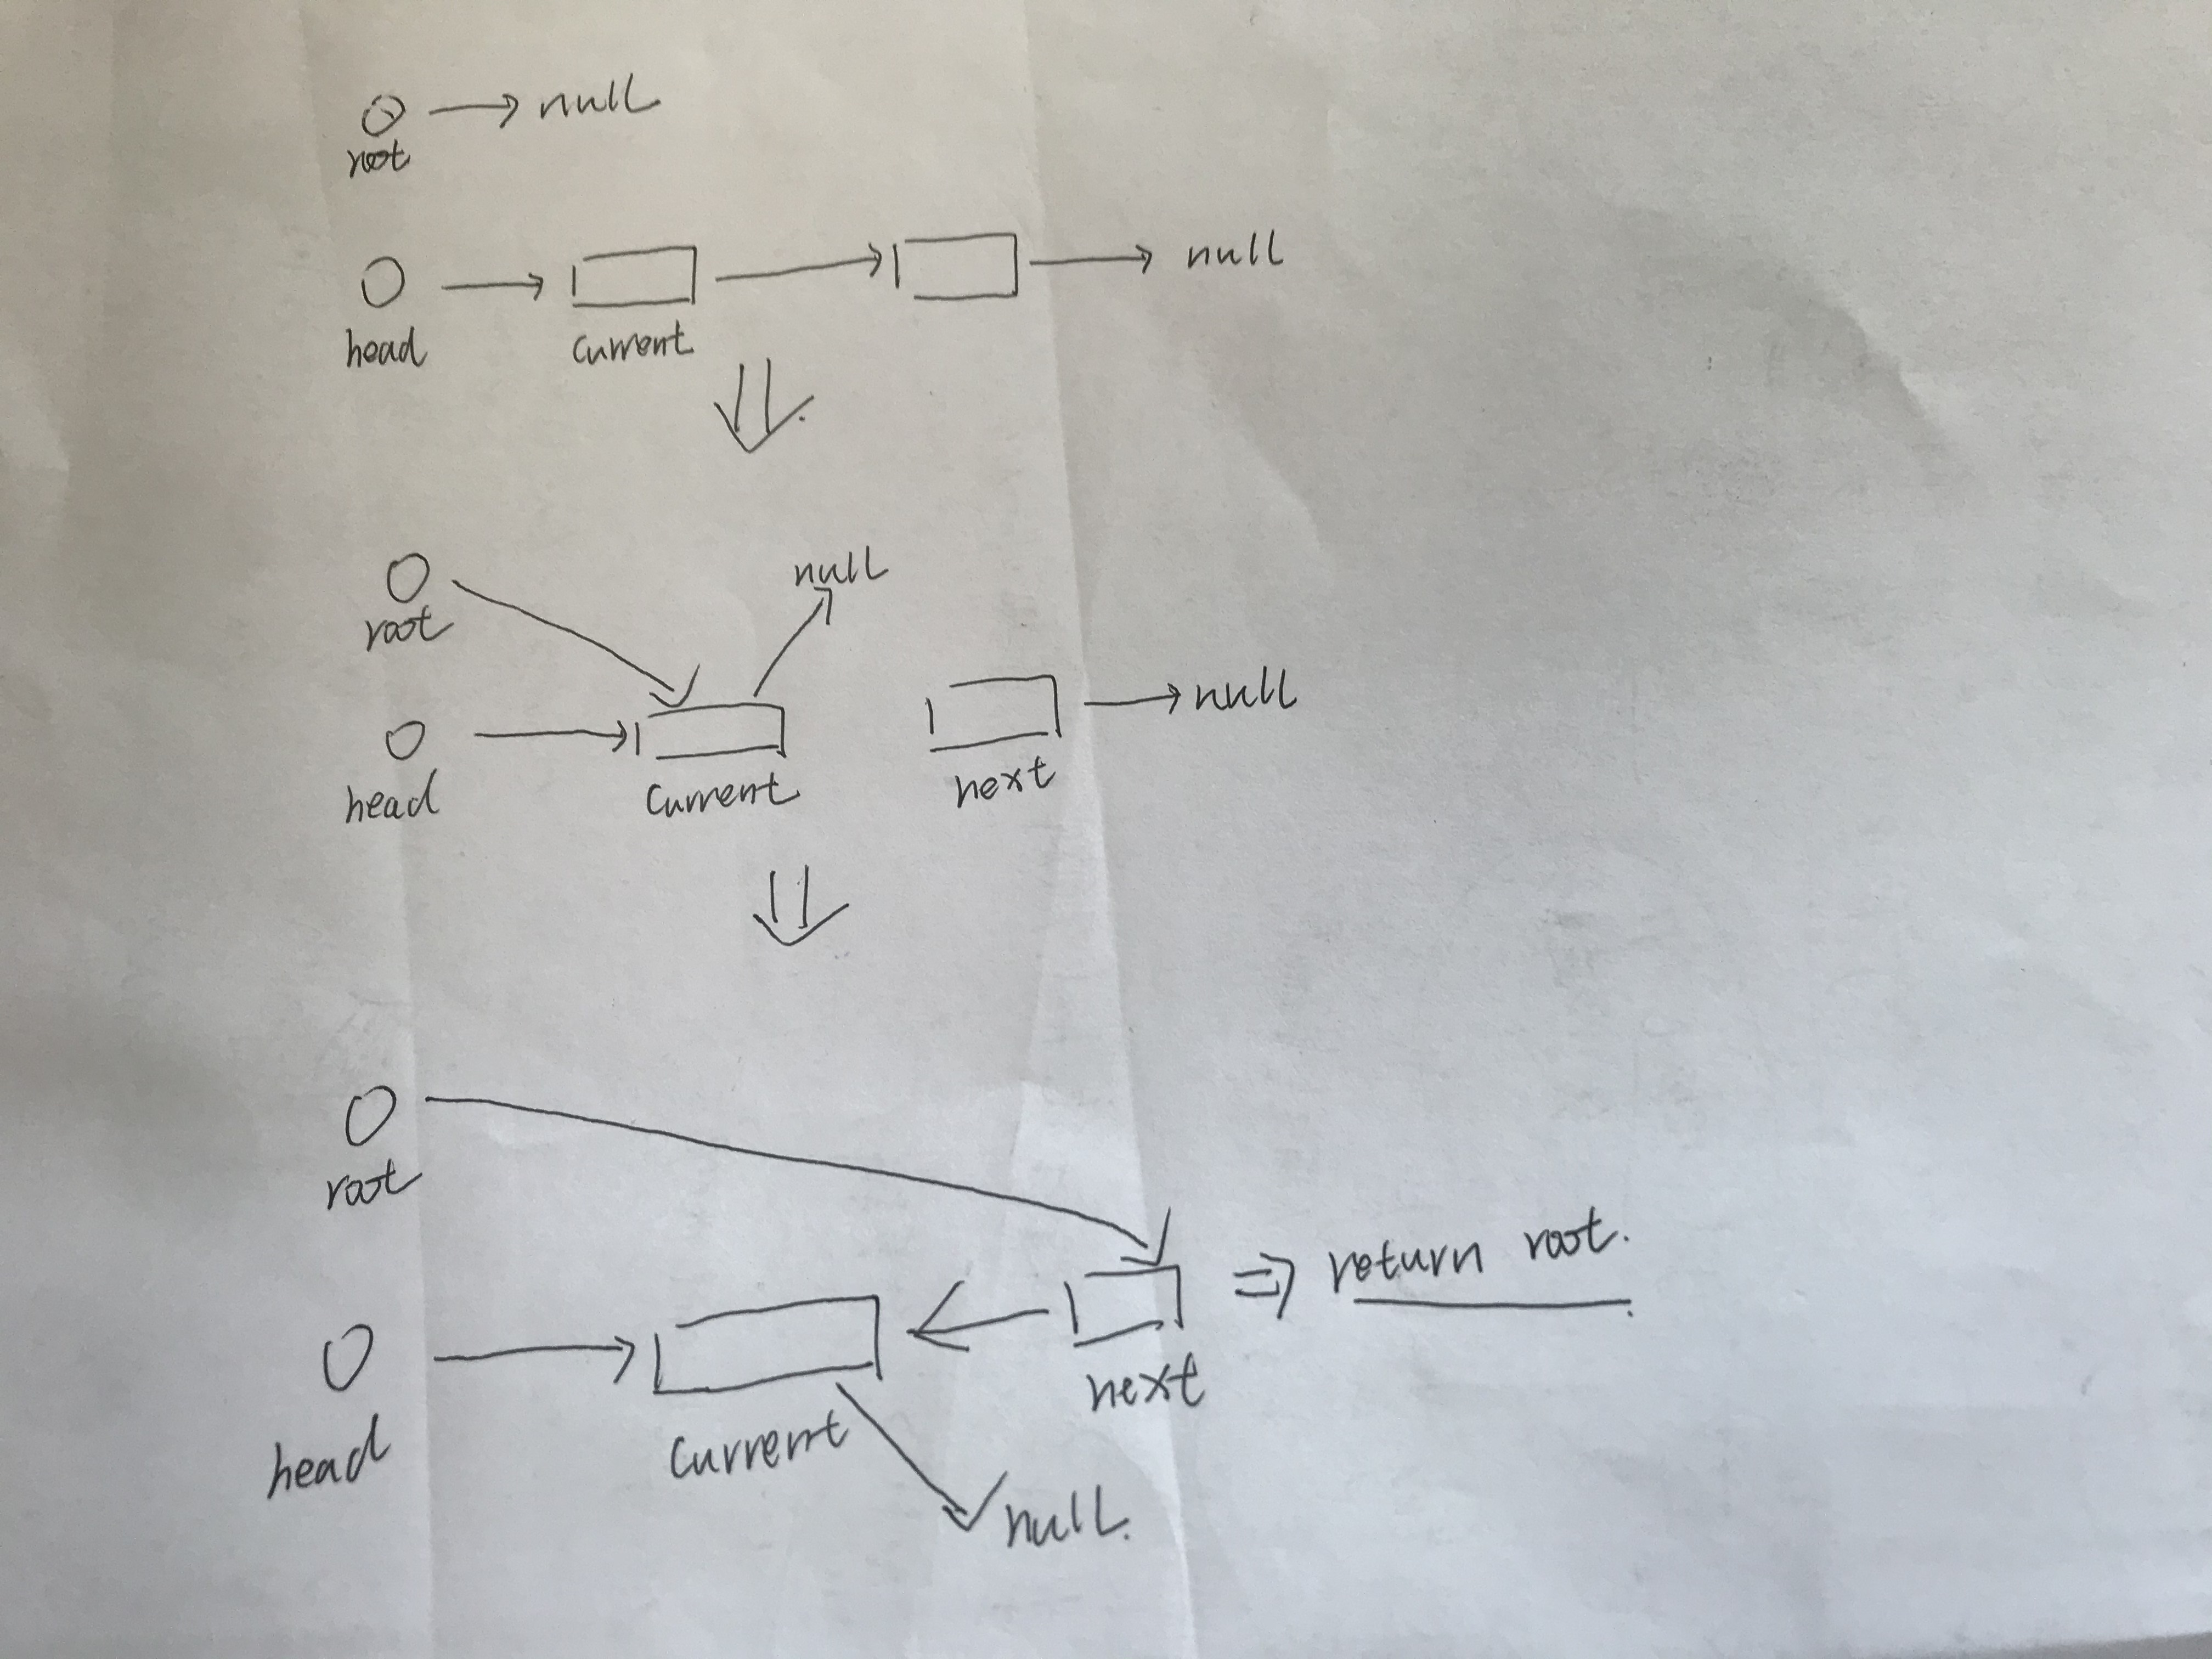 null
root
null
head
current
null
root
null
head
current
next
root
return root.
next
current
head
null.